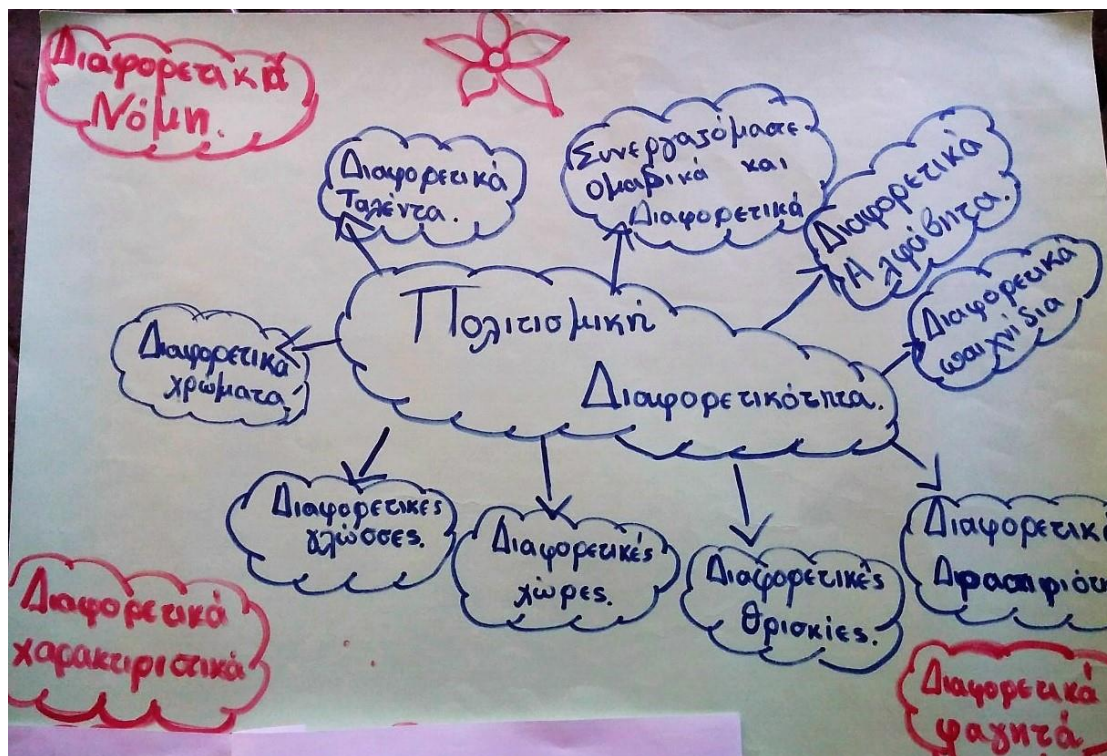 Διαφορετικά
Νόμη.
Διαφορετικά
Ταλέντα.
Συνεργαζόμαστε
ομαδικά και
Διαφορετικά
Διαφορετικά
Αλφάβητα.
Διαφορετικά
παιχνίδια
Πολιτισμική
Διαφορετικότητα.
Διαφορετικά
χρώματα.
Διαφορετικές
γλώσσες.
Διαφορετικές
χώρες.
Διαφορετικές
Θρισκίες.
Διαφορετικ
Διαφορετικά
χαρακτιριστικά
Διαφορετικά
φαγητά